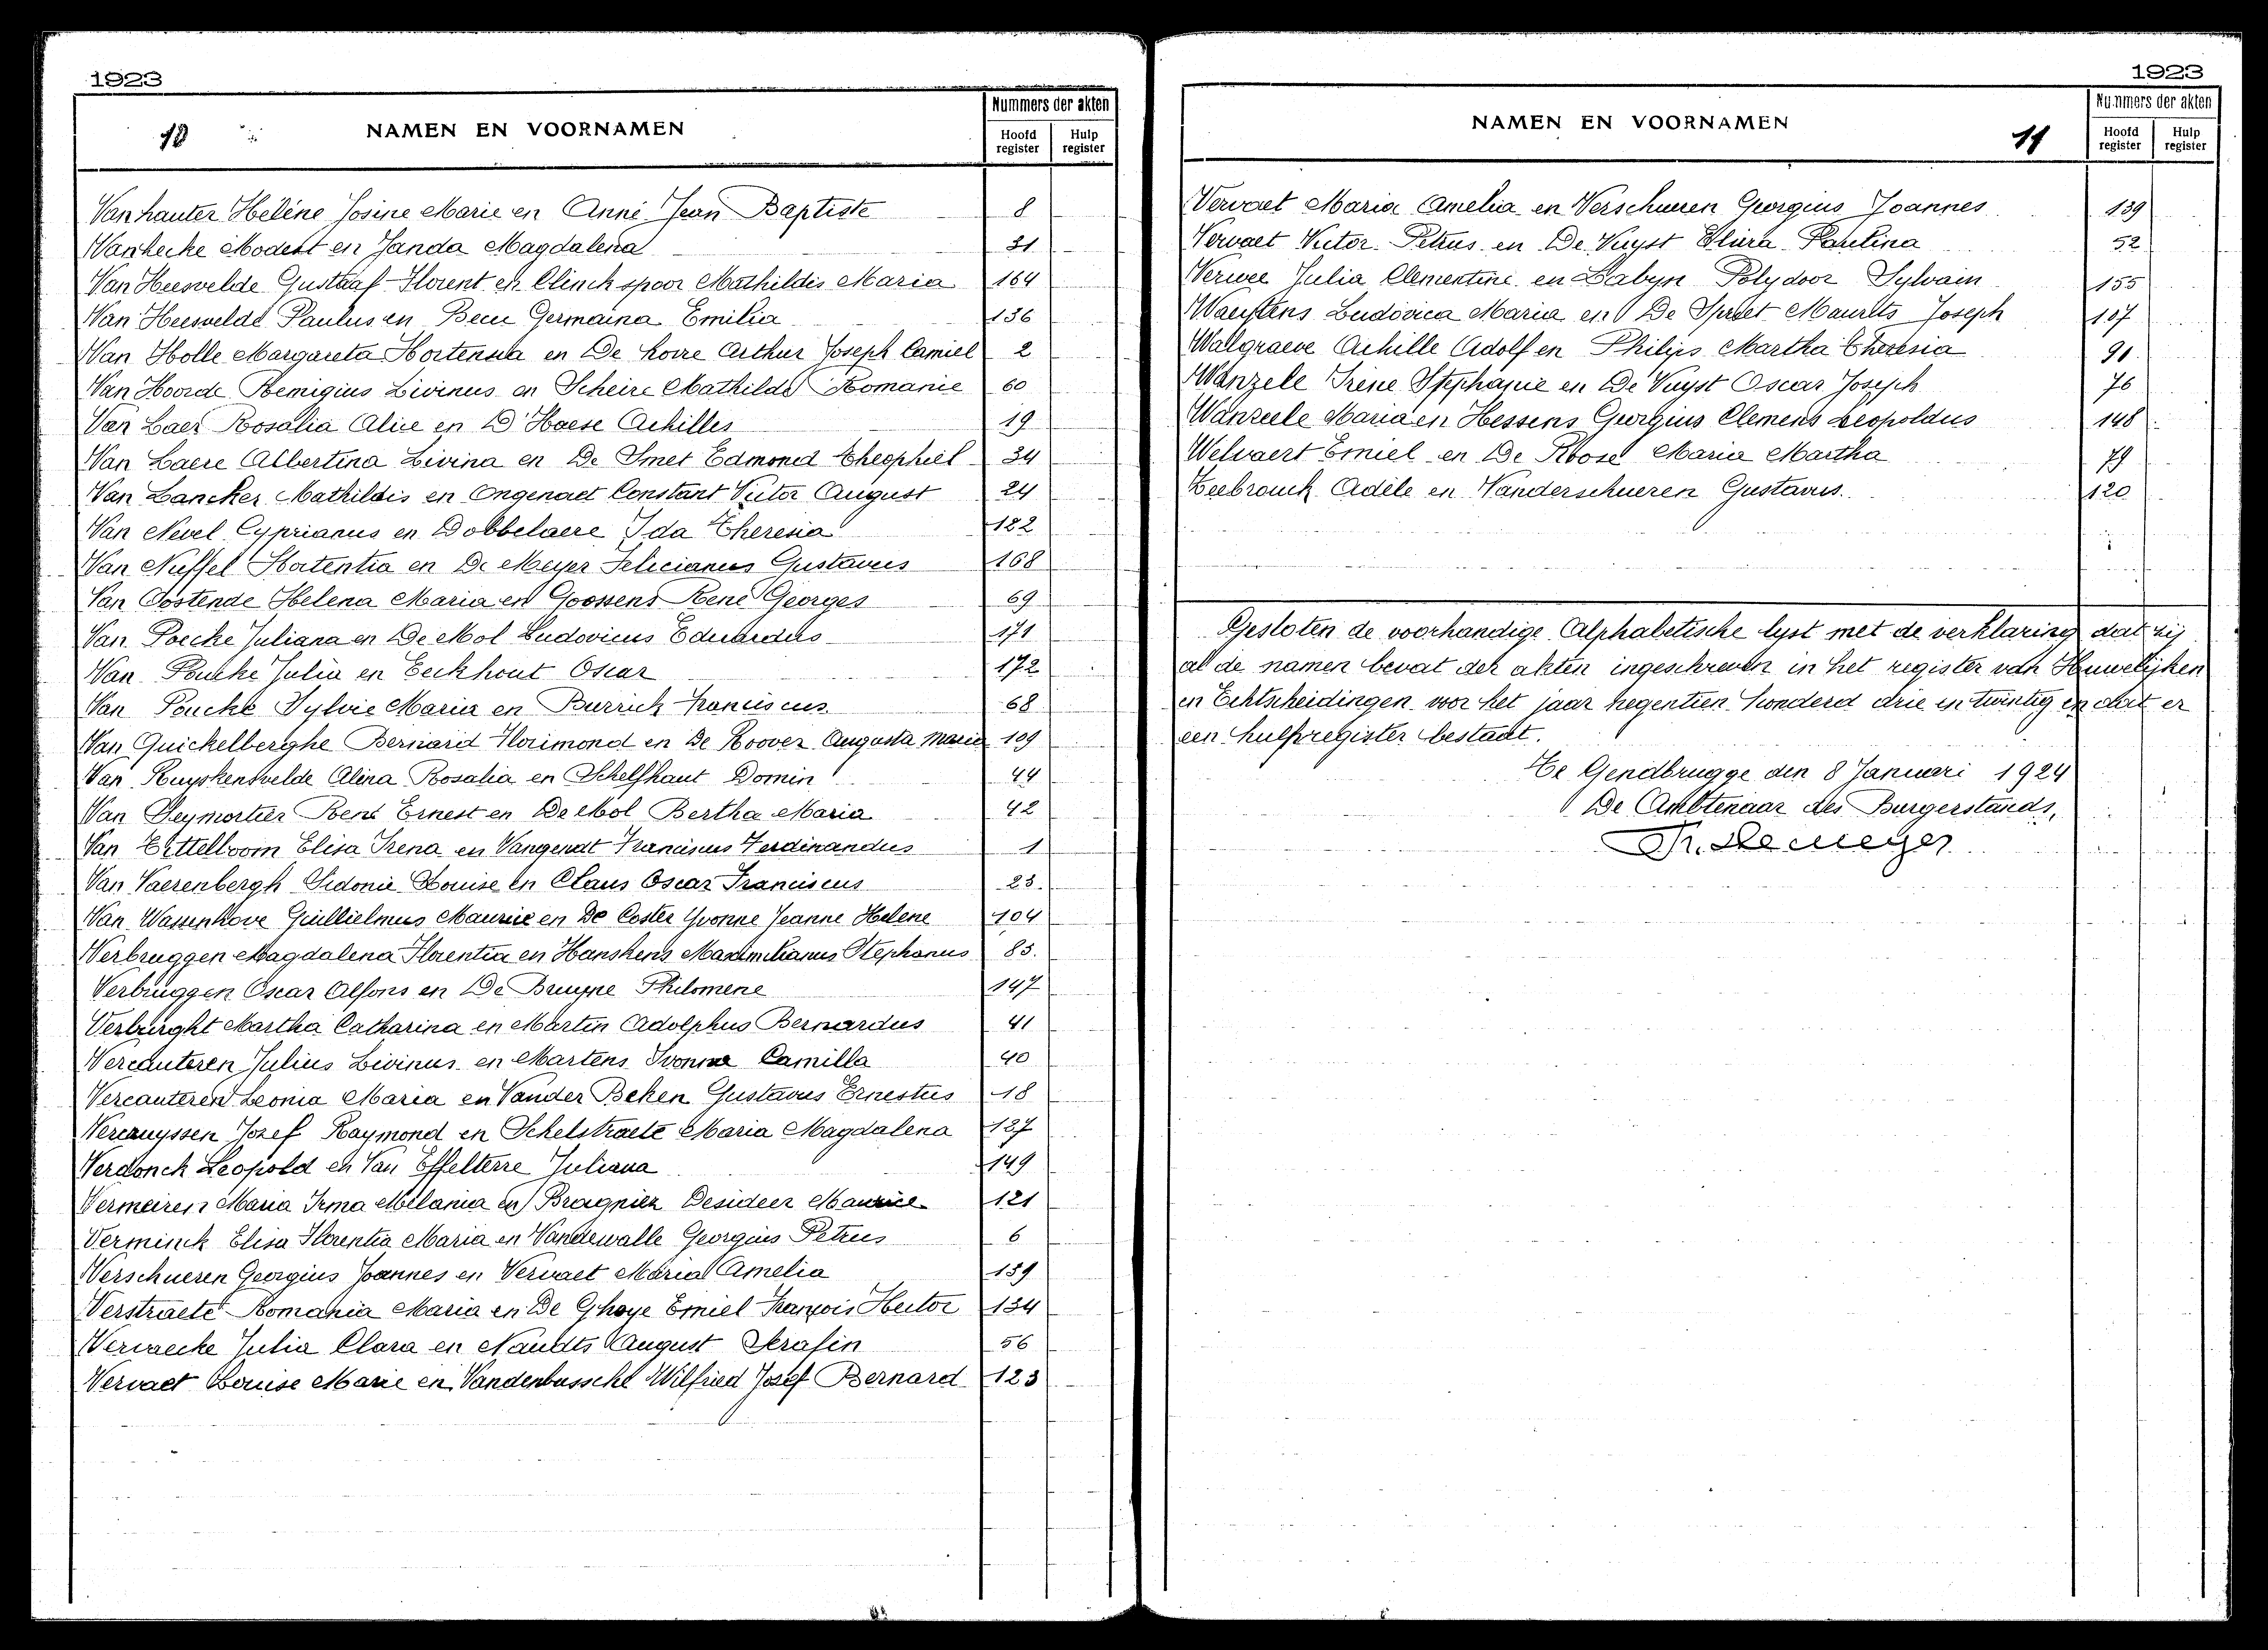 1923
10
NAMEN EN VOORNAMEN
Nummers der akten
Hoofd register
Hulp register
Vanhauter Heléne Josine Marie en Anné Jean Baptiste 8
Vanhecke Modest en Janda Magdalena 31
Van Heesvelde Gustaaf Florent en Clinckspoor Mathildis Maria 164
Van Heesvelde Paulus en Germaina Emilia 136
Van Holle Margareta Hortensia en De Arthur Joseph Camiel 2
Van Hoorde Remigius Livinus en Scheire Mathilde Romanie 60
Van Laer Rosalia Alice en D'Haese Achilles 19
Van Laere Albertina Livina en De Smet Edmond Theophiel 34
Van Lancker Mathildis en Ongenaet Constant Victor August 24
Van Nevel Cyprianus en Dobbelaere Ida Theresia 122
Van Nuffel Hortentia en De Meyer Felicianus Gustavus 168
Van Oostende Helena Maria en Goossens René Georges 69
Van Poecke Juliana en De Mol Ludovicus Eduardus 171
Van Poucke Julia en Eeckhout Oscar 172
Van Poucke Sylvie Maria en Burrick Franciscus 68
Van Quickelberghe Bernard Florimond en De Roover Augusta Maria 109
Van Ruyskensvelde Alina Rosalia en Schelfhaut Domin 44
Van Seymortier René Ernest en De Mol Bertha Maria 42
Van Elisa Irena en Vangeндt Franciscus Ferdinandus 1
Van Vaerenbergh Sidonie Louise en Claus Oscar Franciscus 23
Van Wassenhove Guillielmus Maurice en De Coster Yvonne Jeanne Helene 104
Verbruggen Magdalena Florentia en Hanskens Maximilianus Stephanus 83.
Verbruggen Oscar Alfons en De Bruyne Philomene 147
Verburght Martha Catharina en Martin Adolphus Bernardus 41
Vercauteren Julius Livinus en Martens Ivonna Camilla 40
Vercauteren Leonia Maria en Vander Beken Gustavus Ernestus 18
Vercruyssen Jozef Raymond en Schelstraete Maria Magdalena 127
Verdonck Leopold en Van Effelterre Juliana 149
Vermeiren Maria Irma Melania en Desideer Maurice 121
Verminck Elisa Florentia Maria en Vandewalle Georgius Petrus 6
Verschueren Georgius Joannes en Vervaet Maria Amelia 139
Verstraete Romania Maria en De Ghoye Emiel François Hector 134
Vervaecke Julia Clara en Naudts August Serafin 56
Vervaet Louise Marie en Vandenbussche Wilfried Josef Bernard 123
1923
NAMEN EN VOORNAMEN
11
Nummers der akten
Hoofd register
Hulp register
Vervaet Maria Amelia en Verschueren Georgius Joannes 139
Vervaet Victor Petrus en De Vuyst Elvira Paulina 52
Verwee Julia Clementine en Labyn Polydoor Sylvain 155
Ludovica Maria en De Spriet Maurits Joseph 107
Walgraeve Achille Adolf en Philips Martha Theresia 91
Wanzele Irène Stephanie en De Vuyst Oscar Joseph 76
Wanzeele Maria en Hessens Georgius Clemens Leopoldus 148
Welvaert Emiel en De Roose Maria Martha 79
Zeebrouck Adèle en Vanderschueren Gustavus. 120
Gesloten de voorhandige Alphabetische lyst met de verklaring dat zij
al de namen bevat der akten ingeschreven in het register van Huwelijken
en Echtscheidingen voor het jaar negentien honderd drie en twintig en dat er
een hulpregister bestaat.
Te Gendbrugge den 8 Januari 1924
De Ambtenaar des Burgerstands,
Th. De Meyer